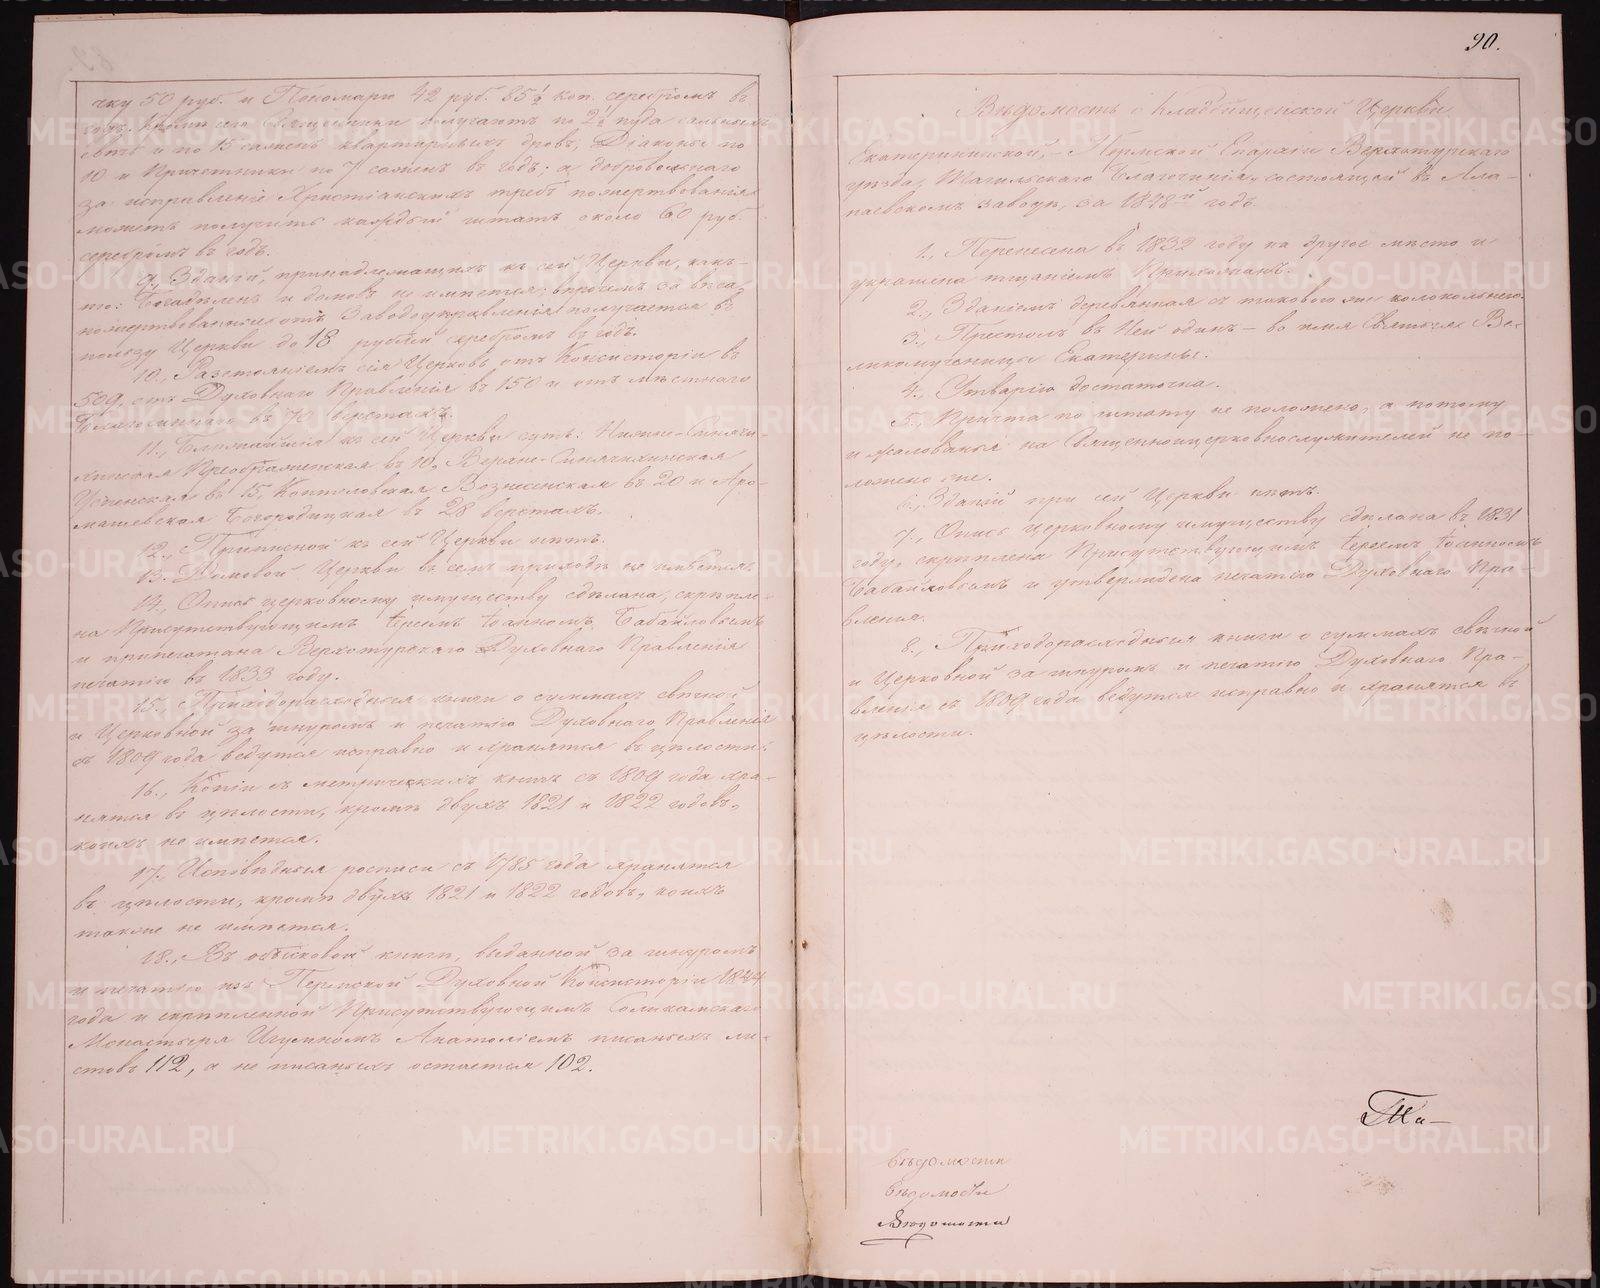 чку 50 руб. и Пономарю 42 руб. 85½ коп. серебромъ въ
годъ. Кромѣ сего Священники получаютъ по 2½ пуда сальныхъ
свѣчь и по 15 саженъ квартирныхъ дровъ, Діаконы по
10 и Причетники по 7 саженъ въ годъ; а добровольнаго
за исправленіе Христіанскихъ требъ пожертвованія
можетъ получить каждый штатъ около 60 руб.
серебромъ въ годъ.
9., Зданій, принадлежащихъ къ сей Церкви, какъ-
то: Богадѣленъ и домовъ не имѣется; впрочемъ за вѣса
пожертвованные отъ Заводоуправленія получается въ
пользу Церкви до 18 рублей серебромъ въ годъ.
10., Разстояніемъ сія Церковь отъ Консисторіи въ
509, отъ Духовнаго Правленія въ 150 и отъ мѣстнаго
Благочиннаго въ 70 верстахъ.
11., Ближайшія къ сей Церкви суть: Нижне-Синячи-
хинская Преображенская въ 10, Верхне-Синячихинская
Успенская въ 15, Коптеловская Вознесенская въ 20 и Аро-
машевская Богородицкая въ 28 верстахъ.
12., Приписной къ сей Церкви нѣтъ.
13. Домовой Церкви въ семъ приходѣ не имѣется.
14., Опись церковному имуществу сдѣлана, скрѣпле-
на Присутствующимъ Іереемъ Іоанномъ Бабайловымъ
и припечатана Верхотурскаго Духовнаго Правленія
печатію въ 1833 году.
15., Приходорасходныя книги о суммахъ свѣчной
и Церковной за шнуромъ и печатію Духовнаго Правленія
съ 1809 года ведутся исправно и хранятся въ цѣлости.
16., Копіи съ метрическихъ книгъ съ 1809 года хра-
нятся въ цѣлости, кромѣ двухъ 1821 и 1822 годовъ,
коихъ не имѣется.
17., Исповѣдныя росписи съ 1785 года хранятся
въ цѣлости, кромѣ двухъ 1821 и 1822 годовъ, коихъ
также не имѣется.
18., Въ обыскной книгѣ, выданной за шнуромъ
и печатію изъ Пермской Духовной Консисторіи 1844
года и скрѣпленной Присутствующимъ Соликамскаго
Монастыря Игумномъ Анатоліемъ писаныхъ ли-
стовъ 112, а не писаныхъ остается 102.
90.
Вѣдомость о Кладбищенской Церкви
Екатерининской, – Пермской Епархіи Верхотурскаго
уѣзда, Тагильскаго Благочинія, состоящей въ Ала-
паевскомъ заводѣ, за 1848й годъ.
1., Перенесена въ 1832 году на другое мѣсто и
украшена тщаніемъ Прихожанъ.
2., Зданіемъ деревянная съ таковою же колокольнею.
3., Престолъ въ Ней одинъ – во имя Святыя Ве-
ликомученицы Екатерины.
4., Утварію достаточна.
5., Причта по штату не положено, а потому
и жалованья на Священноцерковнослужителей не по-
ложено же.
6., Зданій при сей Церкви нѣтъ.
7., Опись церковному имуществу сдѣлана въ 1831
году, скрѣплена Присутствующимъ Іереемъ Іоанномъ
Бабайловымъ и утверждена печатію Духовнаго Пра-
вленія.
8., Приходорасходныя книги о суммахъ свѣчной
и Церковной за шнуромъ и печатію Духовнаго Пра-
вленія съ 1809 года ведутся исправно и хранятся въ
цѣлости.
Вѣдомости
Вѣдомости
Вѣдомости
METRIKI.GASO-URAL.RU